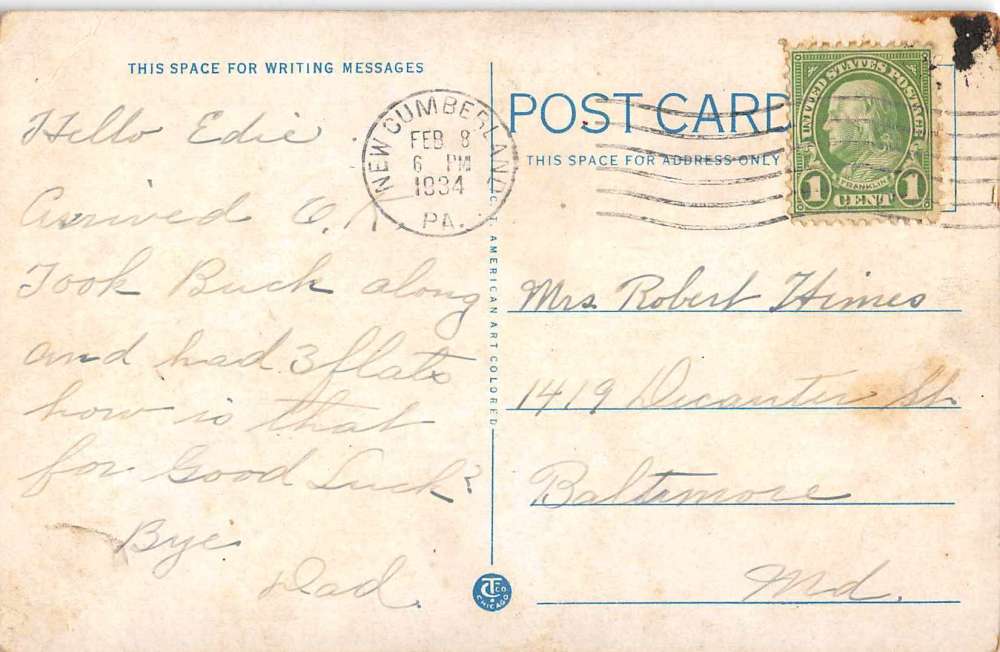 THIS SPACE FOR WRITING MESSAGES
Hello Edie.
Arrived O.K.
Took Buck along
and had 3 flats
how is that
for Good Luck?
Bye
Dad.
NEW CUMBERLAND
FEB 8
6 PM
1934
PA.
C.T. AMERICAN ART COLORED
POST CARD
THIS SPACE FOR ADDRESS ONLY
UNITED STATES POSTAGE
FRANKLIN
1 CENT 1
Mrs. Robert Himes
1419 Decanter St.
Baltimore
Md.
CT CO.
CHICAGO